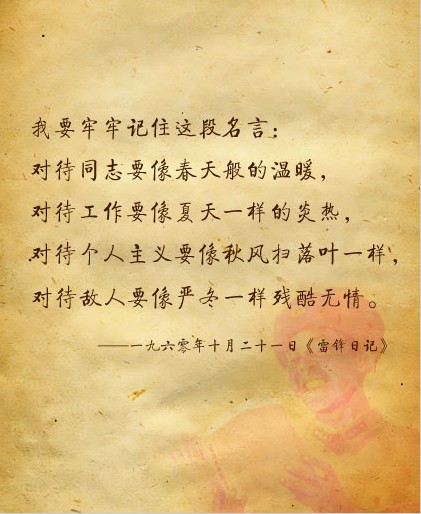 我要牢牢记住这段名言：
对待同志要像春天般的温暖，
对待工作要像夏天一样的炎热，
对待个人主义要像秋风扫落叶一样，
对待敌人要像严冬一样残酷无情。
——一九六零年十月二十一日《雷锋日记》